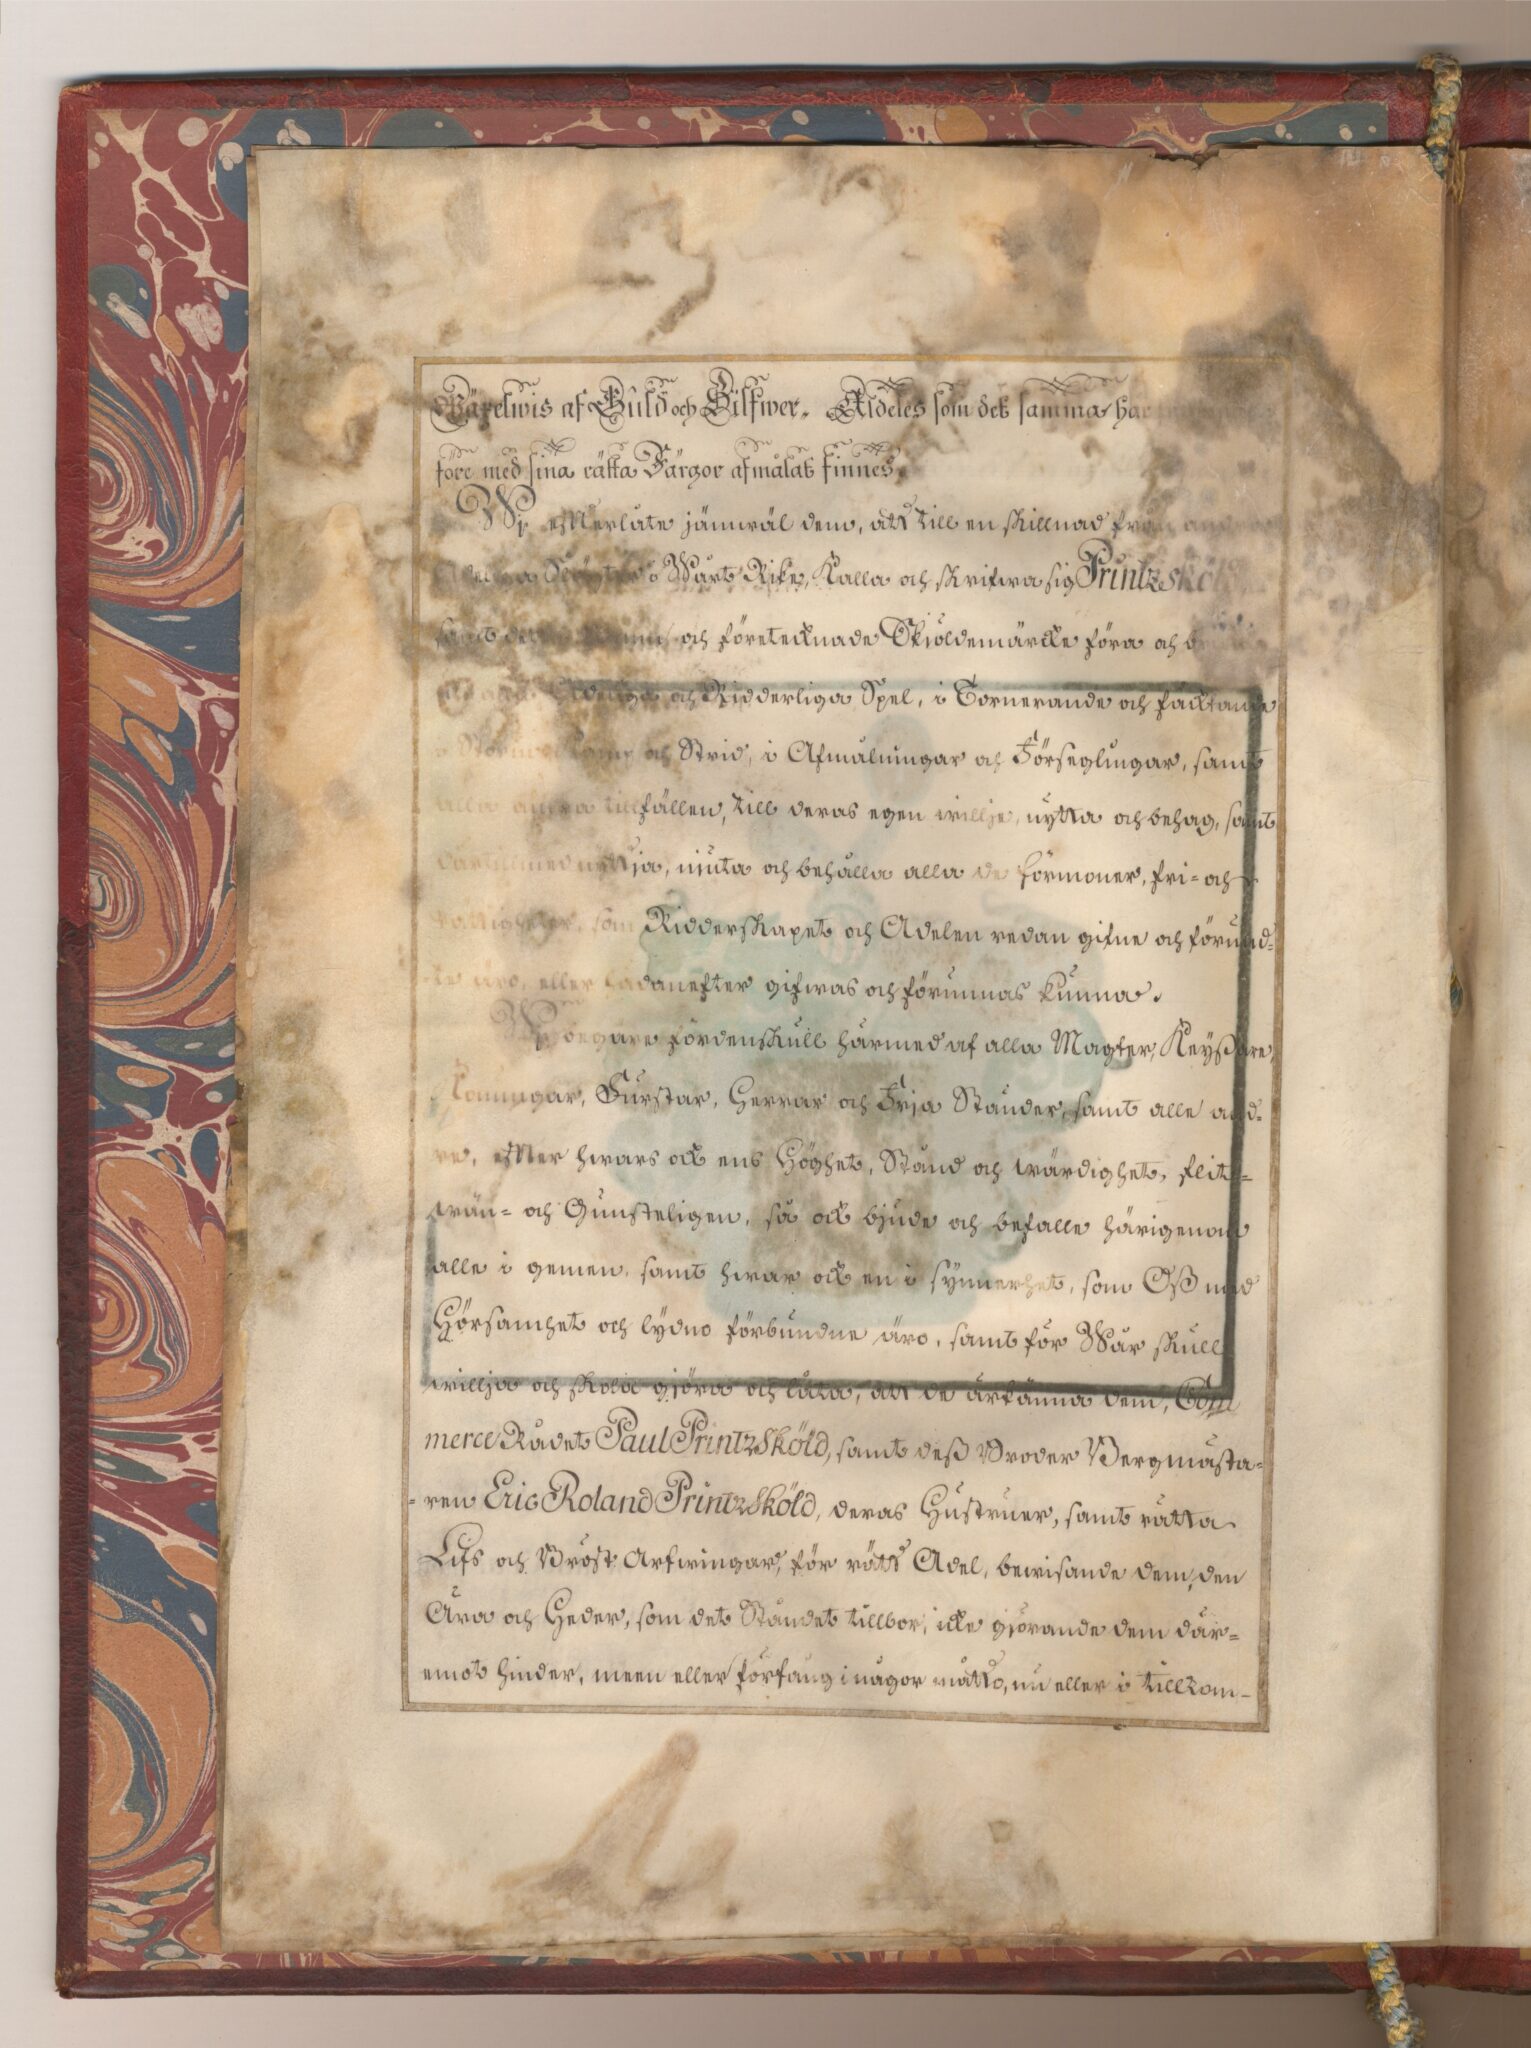 Wäxelwis af Guld och Silfwer. Aldeles som det samma har
före med sina rätta Färgor afmålat finnes.
Wj efterlåte jämwäl dem, att till en skillnad från andra
Adeliga Slägter i Wårt Rike, kalla och skrifwa sig Printzsköld,
samt detta och företecknade Skiöldemärcke föra och
och Ridderliga Spel, i Tornerande och fäcktande
och Strid, i Afmålningar och Förseglingar, samt
alla andra tillfällen, till deras egen willje, nytta och behag, samt
därtillmed nyttja, niuta och behålla alla de förmoner, fri- och
rättigheter, som Ridderskapet och Adelen redan gifne och förund-
te äro, eller hädanefter gifwas och förunnas kunna.
Wj begäre fördenskull härmed af alla Magter, Keyßare,
Konungar, Furstar, Herrar och Frja Ständer, samt alle and-
re, efter hwars ock ens Höghet, Stånd och wärdighet, flit-
wän- och Gunsteligen, så ock bjude och befalle härigenom
alle i gemen, samt hwar ock en i synnerhet, som Oß med
Hörsamhet och lydno förbundne äro, samt för Wår skull
willja och skola gjöra och låta, att de ärkänna dem, Com
merce Rådet Paul Printzsköld, samt deß Broder Bergmästa-
-ren Eric Roland Printzsköld, deras Hustruer, samt rätta
Lifs och Bröst Arfwingar, för rätt Adel, bewisande dem, den
Ära och Heder, som det Ståndet tillhör, icke gjörande dem där-
emot hinder, meen eller förfång i någor måtto, nu eller i tillkom-